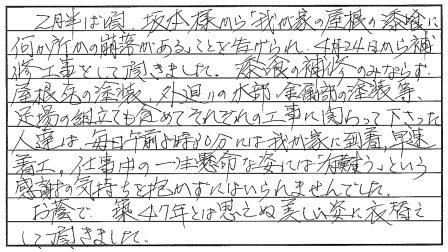 2月半ば頃、坂本様から「我が家の屋根の漆喰に
何か所かの崩落がある」ことを告げられ、4月24日から補
修工事をして頂きました。漆喰の補修のみならず、
屋根瓦の塗装、外廻りの木部・金属部の塗装等
足場の組立ても含めてそれぞれの工事に関わって下さった
人達は、毎日午前8時30分には我が家に到着、早速
着工。仕事中の一生懸命な姿には「有難う」という
感謝の気持ちを抱かずにはいられませんでした。
お蔭で、築47年とは思えぬ美しい姿に衣替え
して頂きました。